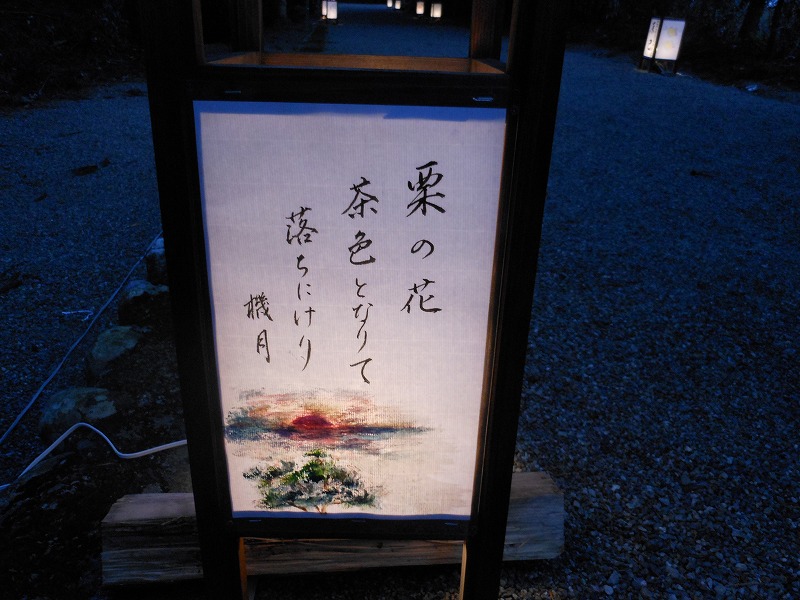 栗の花
茶色となりて
落ちにけり
機月